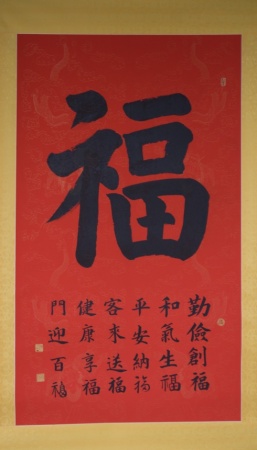 福
勤儉創福
和氣生福
平安納福
客來送福
健康享福
門迎百福